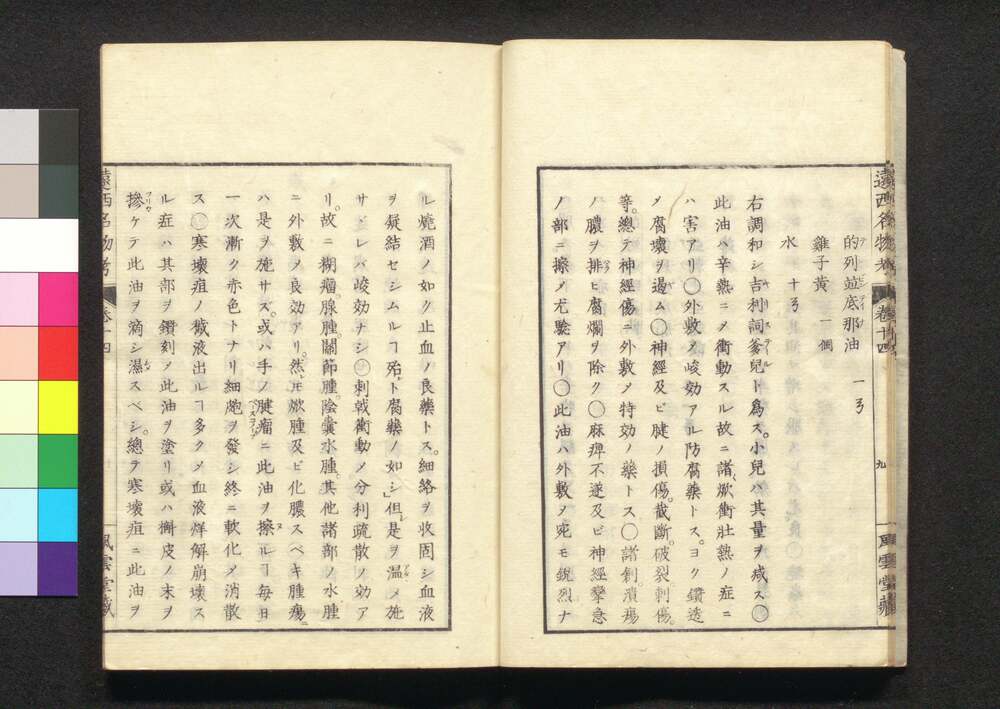 遠西名物考 卷十四 九 風雲堂藏
的列並底那油 一弓
雞子黃 一個
水 十弓
右調和シ吉利詞爹兒ト爲ス。小兒ハ其量ヲ減ス○
此油ハ辛熱ニメ衝動スル故ニ諸焮衝壯熱ノ症ニ
ハ害アリ○外敷メ峻効アル防腐藥トス。ヨク鑽透
メ腐壞ヲ過ム○神經及ビ腱ノ損傷。截斷。破裂。刺傷。
等。總テ神經傷ニ外敷メ特効ノ藥トス○諸創。潰瘍
ノ膿ヲ排ヒ腐爛ヲ除ク○麻痺不遂及ビ神經攣急
ノ部ニ擦メ尤驗アリ○此油ハ外敷メ宛モ銳烈ナ
ル燒酒ノ如ク止血ノ良藥トス。細絡ヲ收固シ血液
ヲ凝結セシムルヿ殆ト腐藥ノ如シ」但是ヲ溫メ施
サヾレバ峻効ナシ○刺戟衝動メ分利疏散ノ効ア
リ。故ニ糊瘤。腺腫。關節腫。陰囊水腫。其他諸部ノ水腫
ニ外敷メ良効アリ。然ㇹ焮腫及ビ化膿スベキ腫瘍。
ハ是ヲ施サズ。或ハ手ノ腱瘤ニ此油ヲ擦ルヿ每日
一次漸ク赤色トナリ細皰ヲ發シ終ニ軟化メ消散
ス○寒壞疽ノ穢液出ルヿ多クメ血液烊解崩壞ス
ル症ハ其部ヲ鑽刻メ此油ヲ塗リ或ハ槲皮ノ末ヲ
摻ケテ此油ヲ滴シ濕スベシ。總テ寒壞疽ニ此油ヲ
遠西名物考 卷十四 風雲堂藏